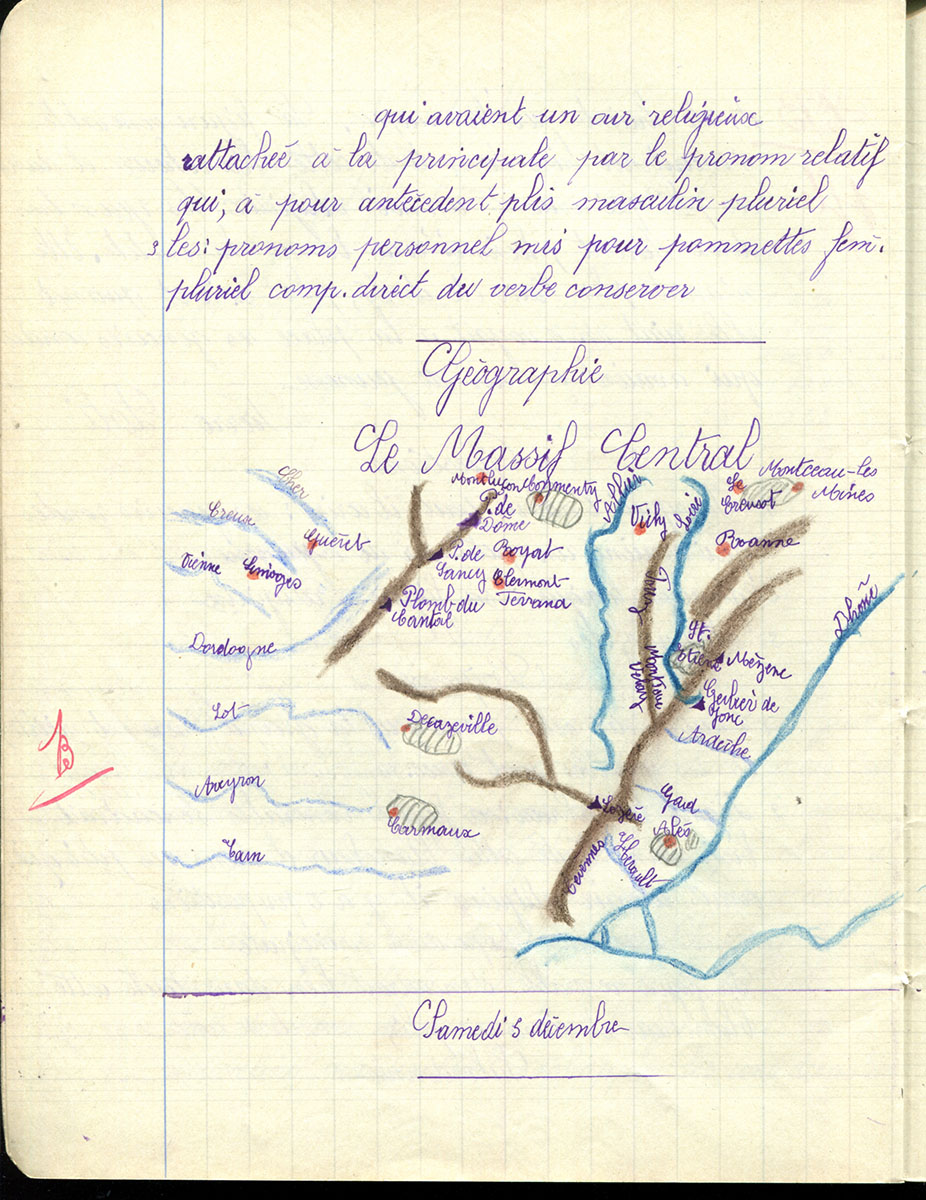 qui avaient un air religieux
rattacheé à la principale par le pronom relatif
qui, à pour antècedent plis masculin pluriel
3 les: pronoms personnel mis pour pommettes fem.
pluriel comp. direct du verbe conserver
Géographie
Le Massif Central
Cher
Creuse
Guéret
Vienne
Limoges
Dordogne
Lot
Aveyron
Tarn
Montluçon
Commentry
P. de
Dôme
P. de
Sancy
Royat
Clermont
Ferrand
Plomb du
Cantal
Allier
Vichy
Loire
Le
Creusot
Montceau-les
Mines
Roanne
Forez
Monts du
Velay
St.
Etiene
Mézenc
Gerbier de
Jonc
Ardèche
Rhône
Decazeville
Carmaux
Lozère
Gard
Alès
Hérault
Cévennes
B
Samedi 5 décembre